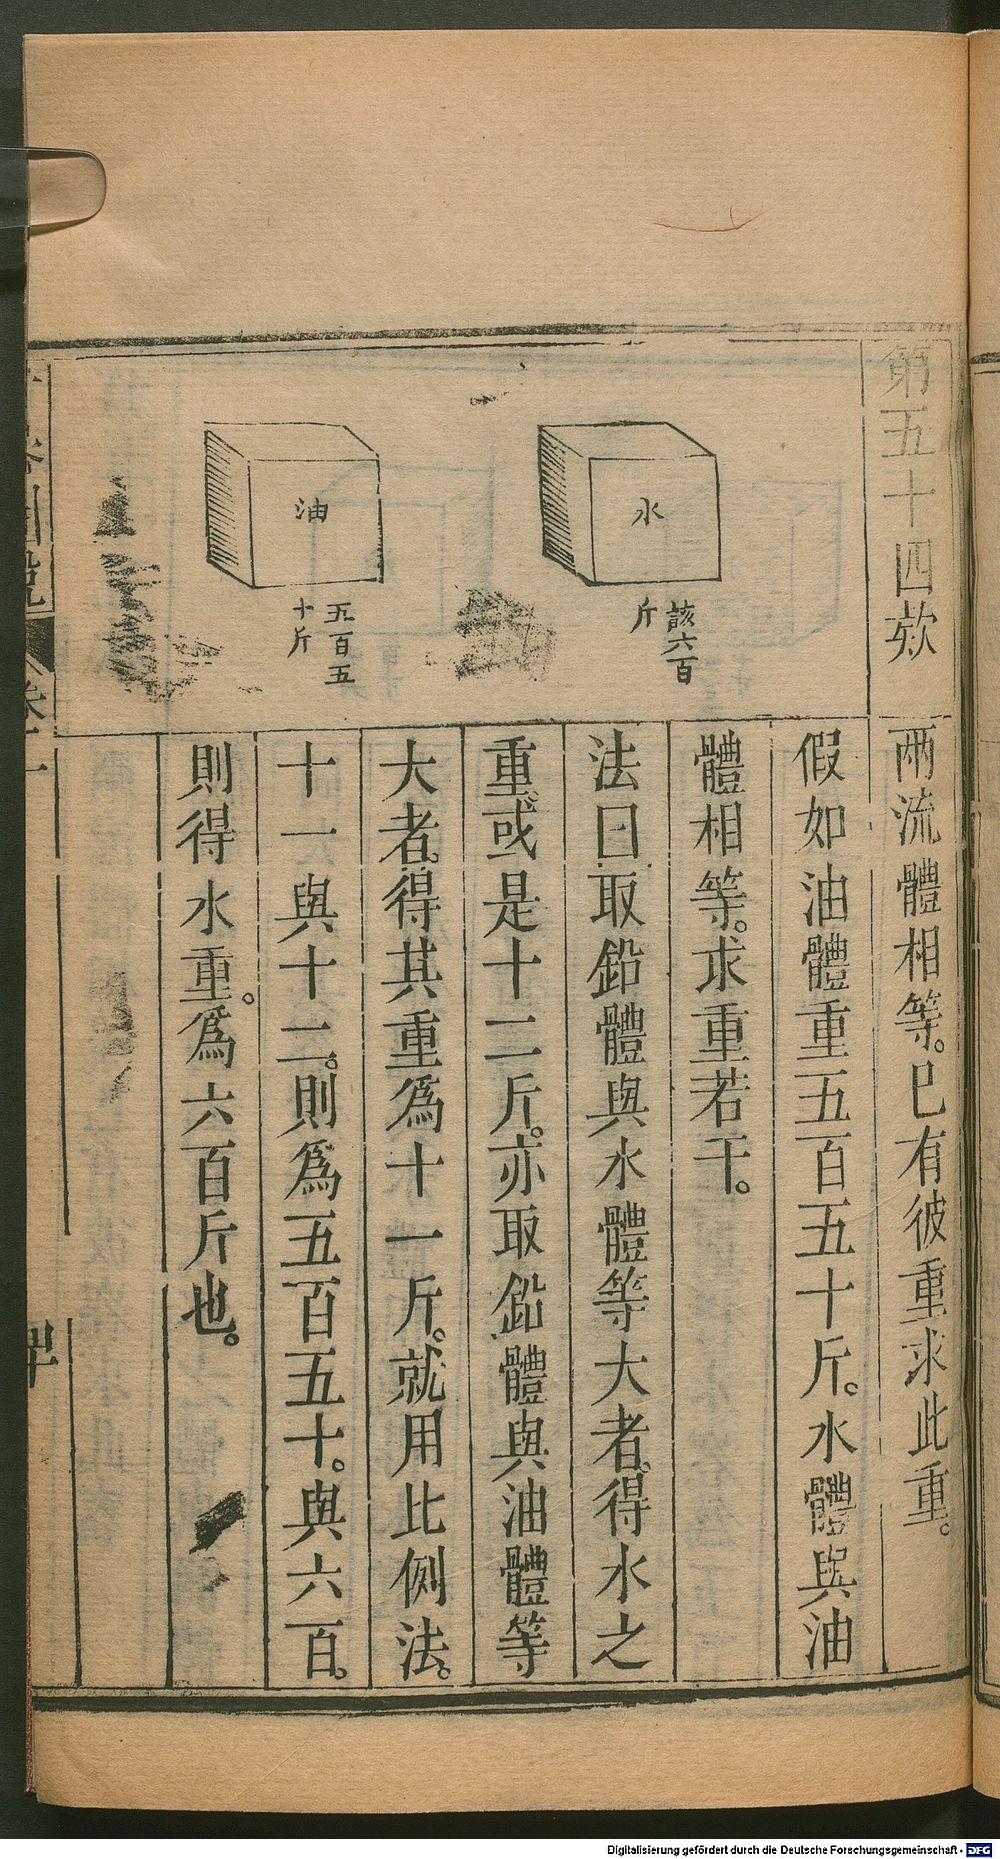 第五十四欵
水
該六百
斤
油
五百五
十斤
兩流體相等。已有彼重求此重。
假如油體重五百五十斤。水體與油
體相等。求重若干。
法曰取鉛體與水體等大者。得水之
重。或是十二斤。亦取鉛體與油體等
大者。得其重爲十一斤。就用比例法。
十一與十二。則爲五百五十。與六百。
則得水重。爲六百斤也。
圖說
卷一
Digitalisierung gefördert durch die Deutsche Forschungsgemeinschaft - DFG